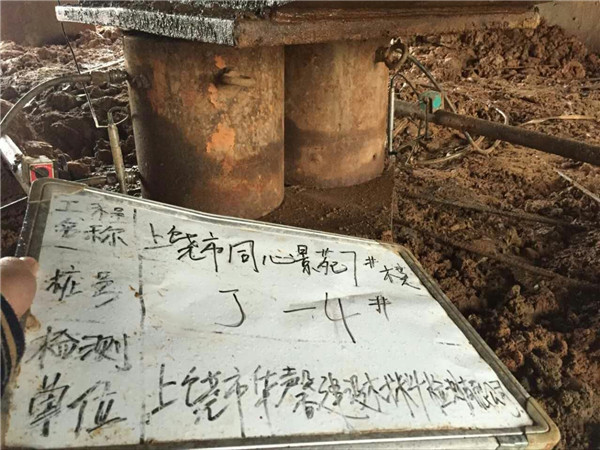 工程名称 上饶市同心景苑7#楼
桩号 J-4#
检测单位 上饶市华馨建设材料检测有限公司